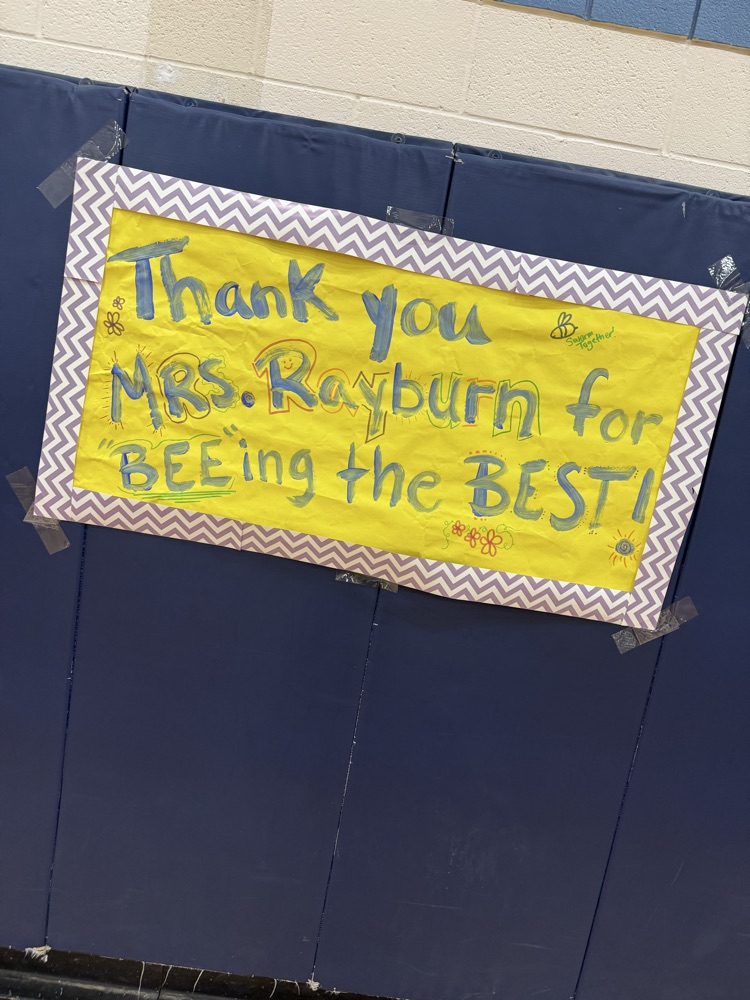 Thank you
Swarm
Together!
MRS. Rayburn for
"BEE"ing the BEST!